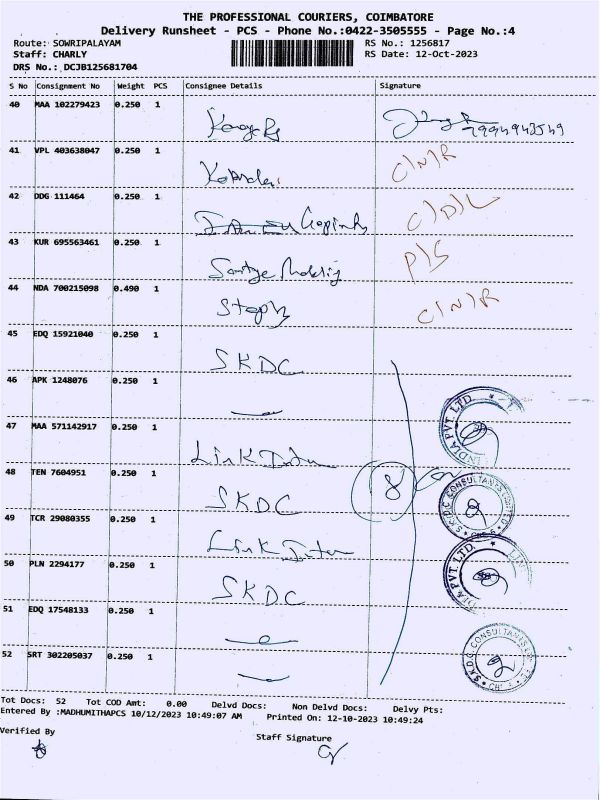 THE PROFESSIONAL COURIERS, COIMBATORE
Delivery Runsheet - PCS - Phone No.:0422-3505555 - Page No.:4
Route: SOWRIPALAYAM RS No.: 1256817
Staff: CHARLY RS Date: 12-Oct-2023
DRS No.: DCJB125681704
S No Consignment No Weight PCS Consignee Details Signature
40 MAA 102279423 0.250 1
41 VPL 403638047 0.250 1 C/N/R
42 DDG 111464 0.250 1 Gopinth C/D/L
43 KUR 695563461 0.250 1 P/S
44 NDA 700215098 0.490 1 Steph C/N/R
45 EDQ 15921040 0.250 1 SKDC
46 APK 1248076 0.250 1
47 MAA 571142917 0.250 1 Link Inter
INDIA PVT LTD
48 TEN 7604951 0.250 1 SKDC 8
S.K.D.C CONSULTANTS LIMITED
49 TCR 29080355 0.250 1 Link Inter
50 PLN 2294177 0.250 1 SKDC
PVT LTD.
51 EDQ 17548133 0.250 1
52 SRT 302205037 0.250 1
S.K.D.C. CONSULTANTS
Tot Docs: 52 Tot COD Amt: 0.00 Delvd Docs: Non Delvd Docs: Delvy Pts:
Entered By :MADHUMITHAPCS 10/12/2023 10:49:07 AM Printed On: 12-10-2023 10:49:24
Verified By
Staff Signature